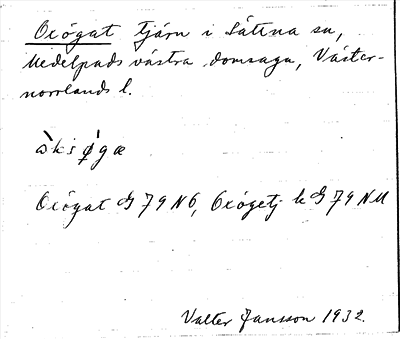 Oxögat tjärn i Sättna sn,
Medelpads västra domsaga, Väster-
norrlands l.
ò̀ksø̀gœ
Oxögat G 79 NÖ, Oxögetj k G 79 NU
Valter Jansson 1932.